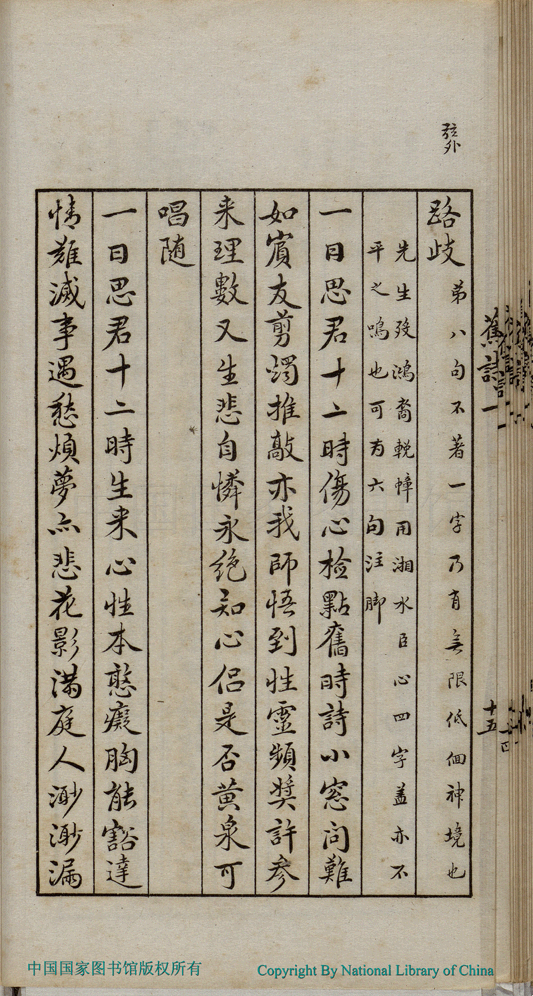 弦外
路歧 第八句不著一字乃有無限低佪神境也
先生歿鴻裔輓幛用湘水臣心四字蓋亦不
平之鳴也可为六句注脚
一日思君十二時傷心檢點舊時詩小窓问難
如賓友剪燭推敲亦我師悟到性靈頻奬許参
来理數又生悲自憐永絶知心侣是否黄泉可
唱随
一日思君十二時生来心性本憨癡胸能豁達
情難滅事遇愁煩夢亦悲花影满庭人渺渺漏
蕉詩一
十五
中国国家图书馆版权所有
Copyright By National Library of China